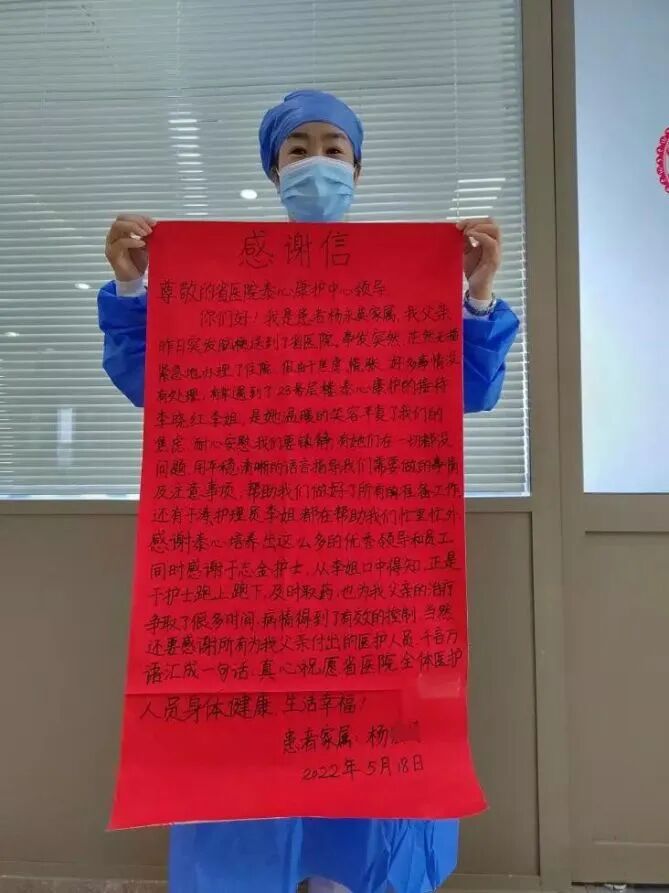 感谢信
尊敬的省医院泰心康护中心领导
你们好！我是患者杨永英家属，我父亲
昨日突发脑梗送到了省医院，事发突然，茫然无措
紧急地办理了住院，但由于焦虑，慌张，好多事情没
有处理，有幸遇到了23号层楼泰心康护的接待
李晓红李姐，是她温暖的笑容平复了我们的
焦虑，耐心安慰我们要镇静，有她们在一切都没
问题，用平稳，清晰的话言指导我们需要做的事情
及注意事项，帮助我们做好了所有的准备工作
还有于淼护理员李姐都在帮助我们忙里忙外
感谢泰心培养出这么多的优秀领导和员工
同时感谢于志金护士，从李姐口中得知，正是
于护士跑上跑下，及时取药，也为我父亲的治疗
争取了很多时间，病情得到了有效的控制，当然
还要感谢所有为我父亲付出的医护人员，千言万
语汇成一句话，真心祝愿省医院全体医护
人员身体健康，生活幸福！
患者家属：杨
2022年5月18日